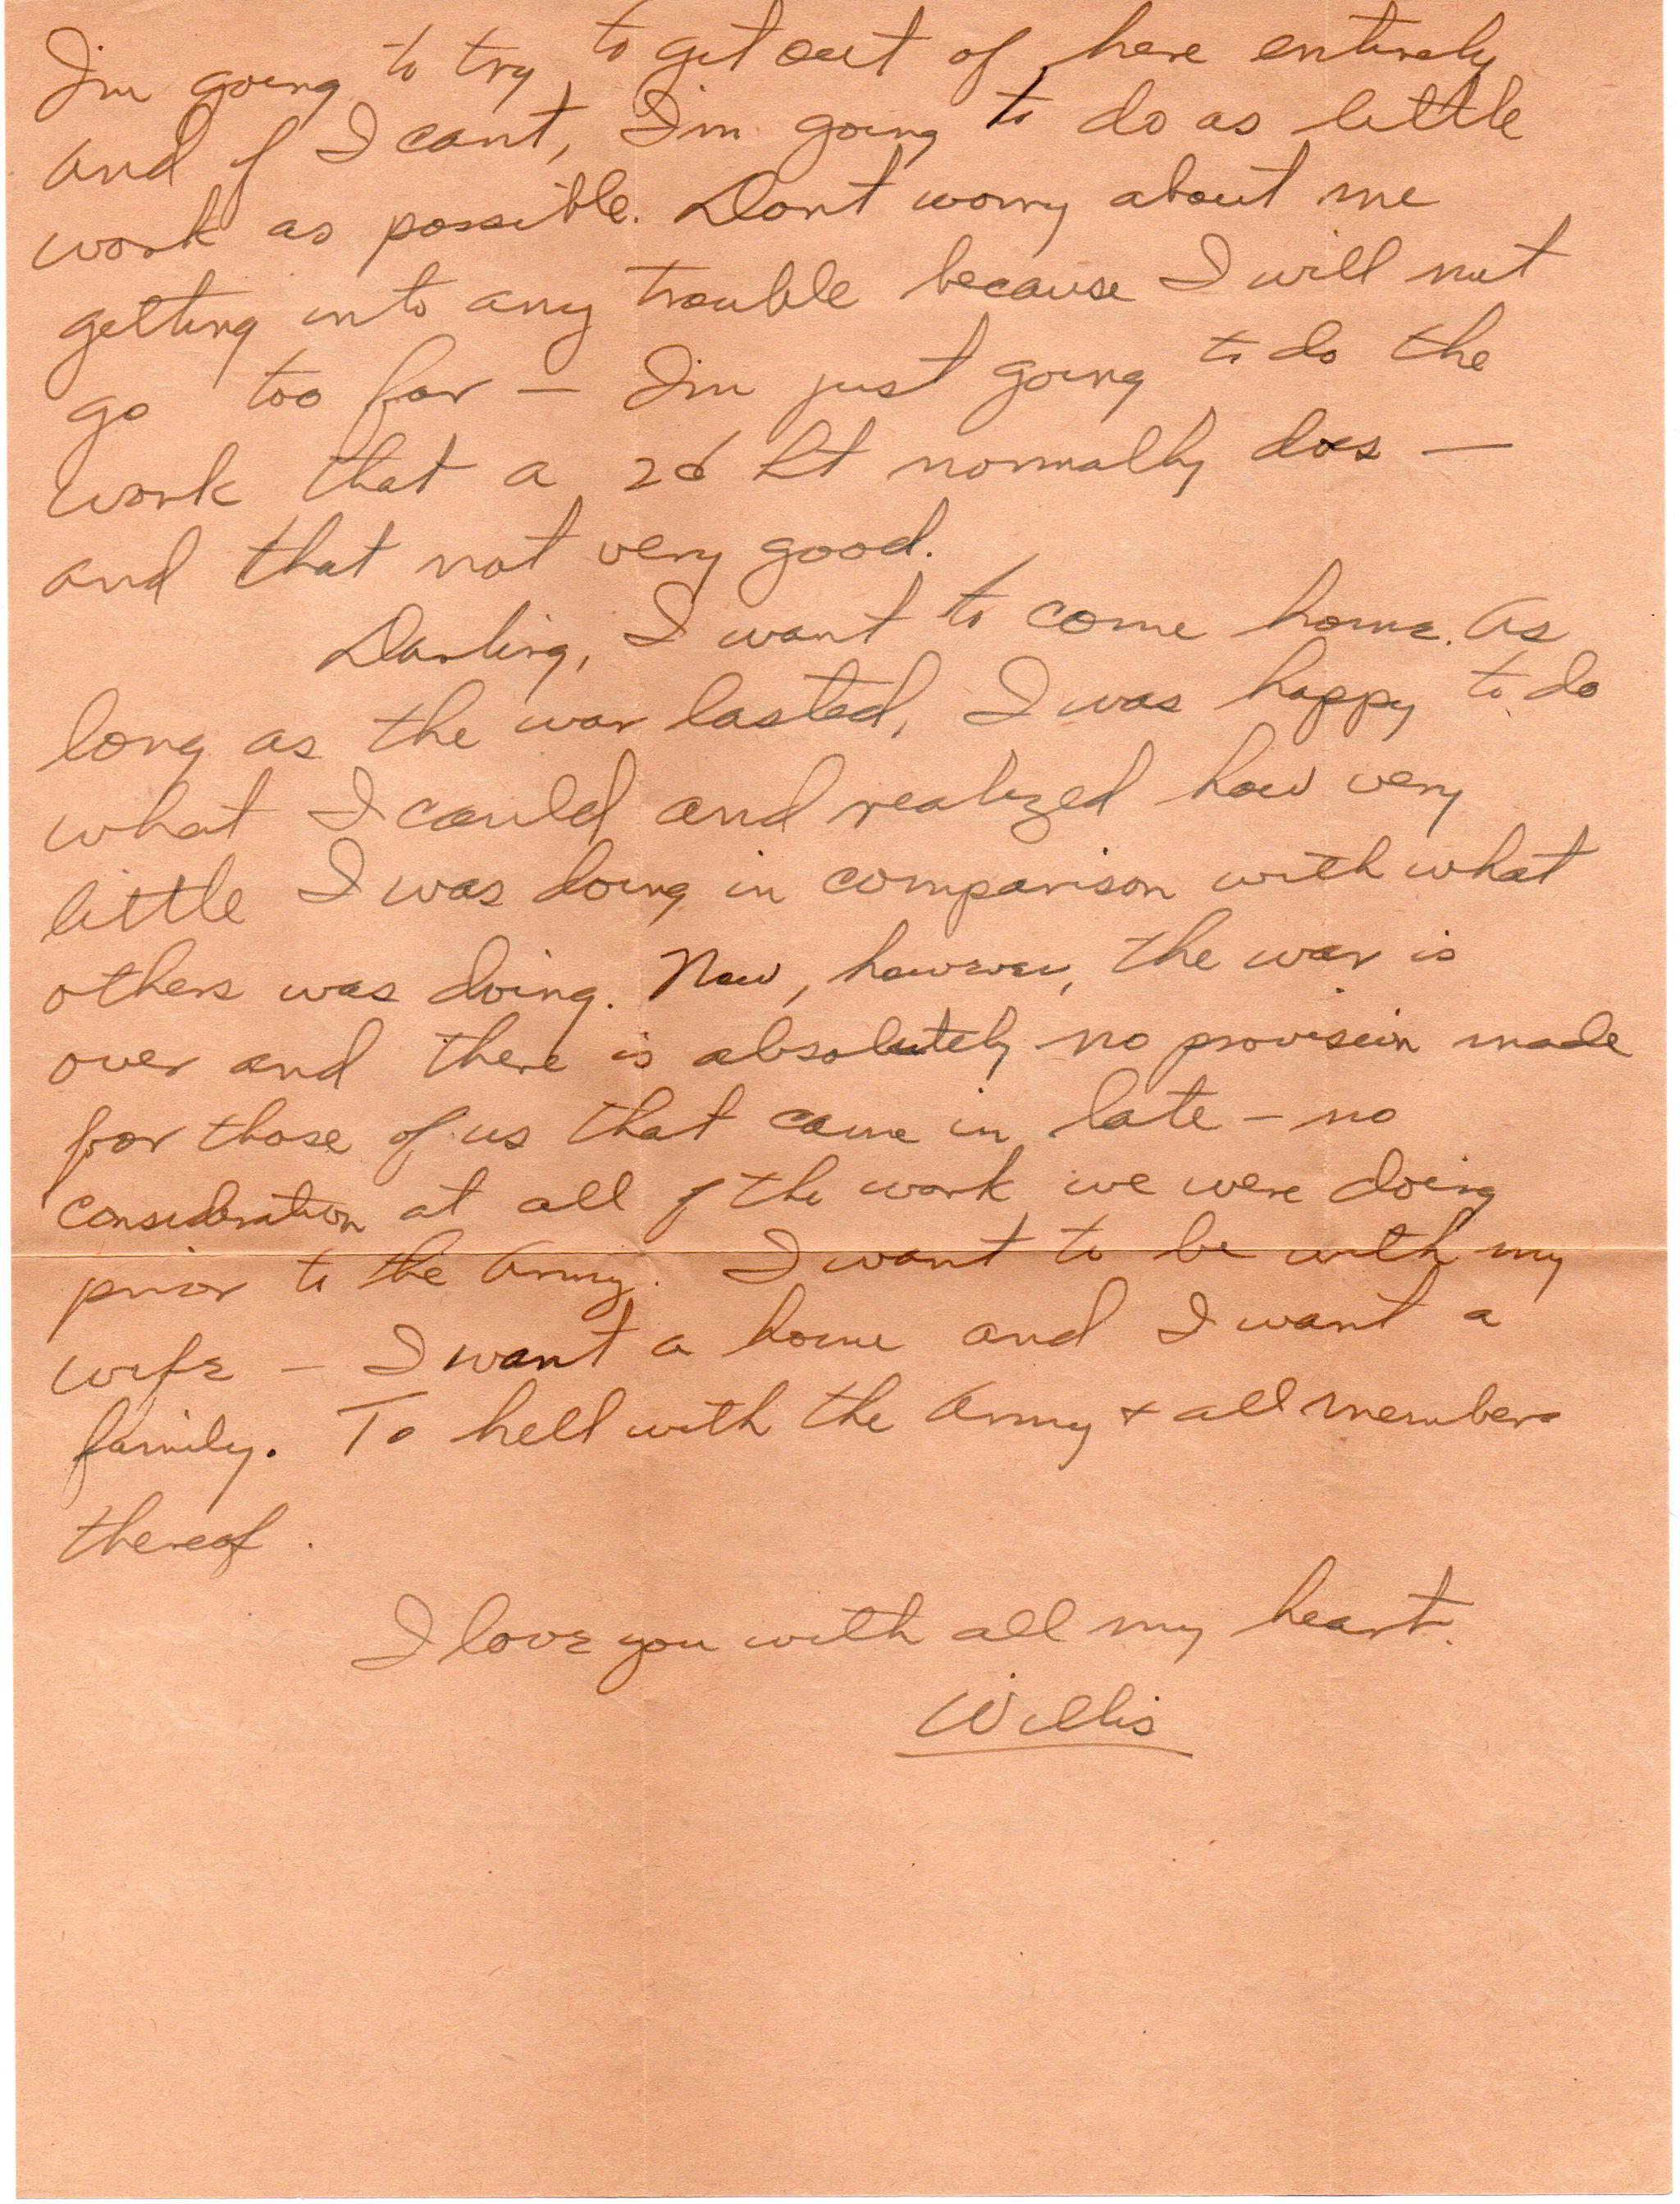 I'm going to try to get out of here entirely
and if I cant, I'm going to do as little
work as possible. Don't worry about me
getting into any trouble because I will not
go too far — I'm just going to do the
work that a 2d Lt normally does —
and that not very good.
Darling, I want to come home. As
long as the war lasted, I was happy to do
what I could and realized how very
little I was doing in comparison with what
others was doing. Now, however, the war is
over and there is absolutely no provision made
for those of us that came in late — no
consideration at all of the work we were doing
prior to the Army. I want to be with my
wife — I want a home and I want a
family. To hell with the Army + all members
thereof.
I love you with all my heart.
Willis